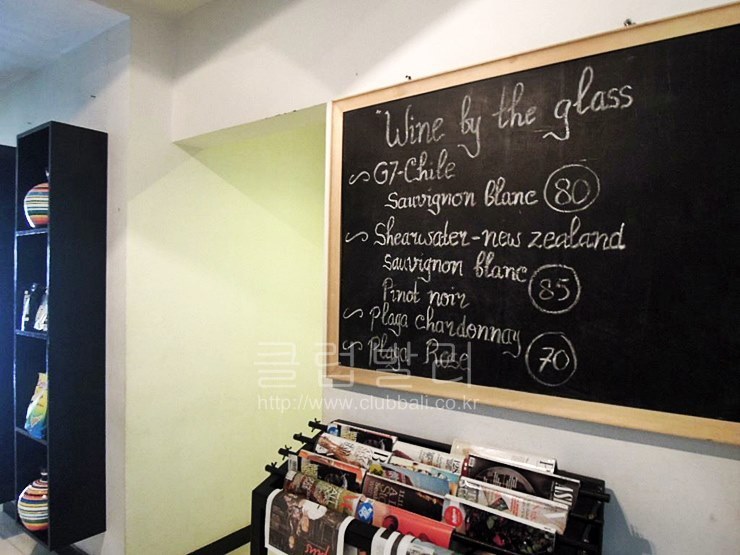 "Wine by the glass
G7-Chile
Sauvignon blanc 80
Shearwater-new zealand
Sauvignon blanc
Pinot noir 85
Plaga chardonnay
Plaga Rose 70
클럽발리
http://www.clubbali.co.kr